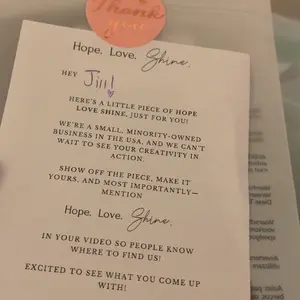 Thank
you
Hope. Love. Shine.
HEY Jill!
HERE'S A LITTLE PIECE OF HOPE
LOVE SHINE, JUST FOR YOU!
WE'RE A SMALL, MINORITY-OWNED
BUSINESS IN THE USA, AND WE CAN'T
WAIT TO SEE YOUR CREATIVITY IN
ACTION.
SHOW OFF THE PIECE, MAKE IT
YOURS, AND MOST IMPORTANTLY—
MENTION
Hope. Love. Shine.
IN YOUR VIDEO SO PEOPLE KNOW
WHERE TO FIND US!
EXCITED TO SEE WHAT YOU COME UP
WITH!